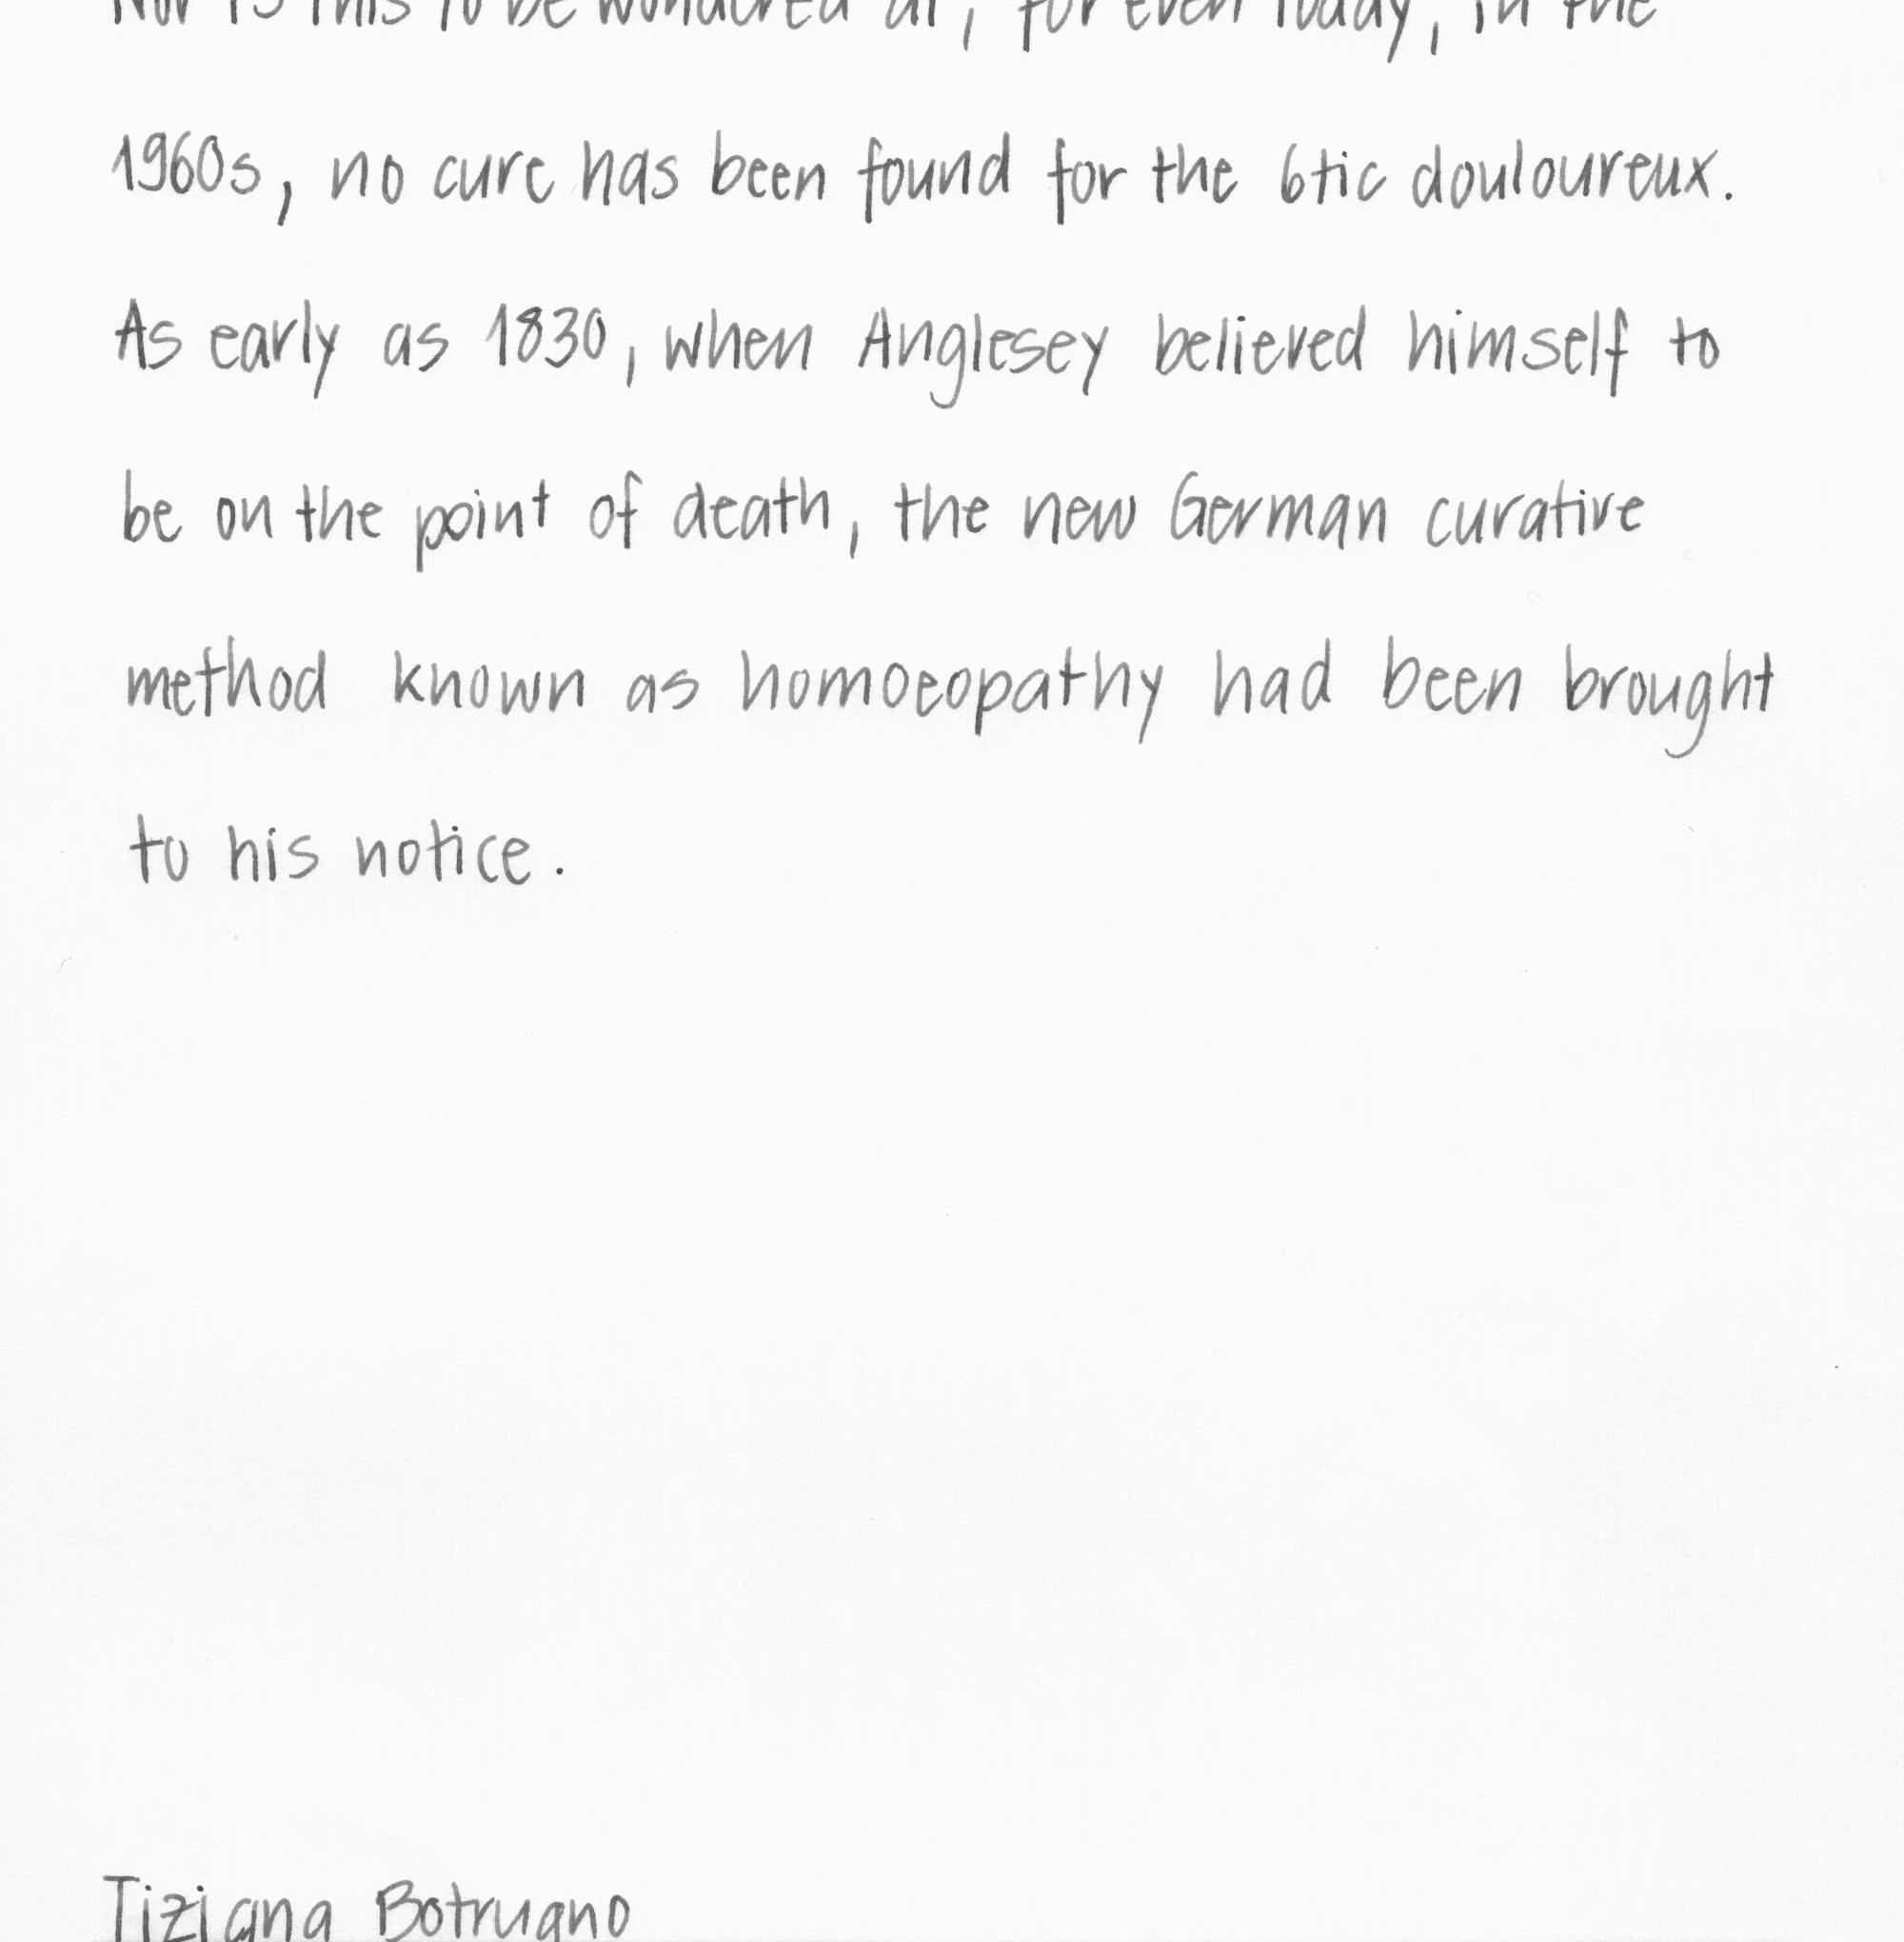 Nor is this to be wondered at, for even today, in the
1960s, no cure has been found for the 6tic douloureux.
As early as 1830, when Anglesey believed himself to
be on the point of death, the new German curative
method known as homoeopathy had been brought
to his notice.
Tiziana Botrugno